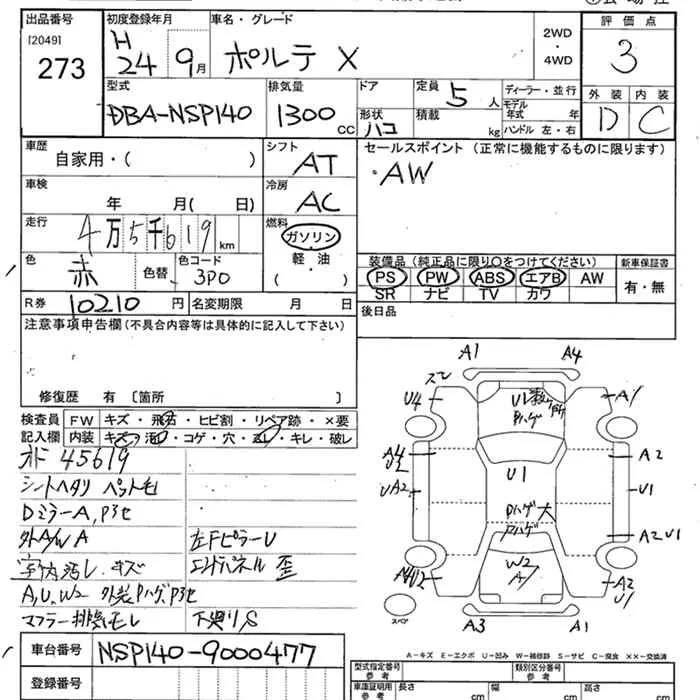 出品番号 初度登録年月 車名・グレード 評価点
[2049] 273 H 24 9月 ポルテ X 2WD・4WD 3
型式 排気量 ドア 定員 5人 ディーラー・並行 外装 内装
DBA-NSP140 1300cc 形状 ハコ 積載 kg モデル年式 年 ハンドル 左・右 D C
車歴 自家用・( ) シフト AT セールスポイント (正常に機能するものに限ります)
車検 年 月( 日) 冷房 AC ・AW
走行 4万5千619km 燃料 ガソリン 軽・油 ( )
色 赤 色替 色コード 3P0 装備品 (純正品に限り○をつけてください) 新車保証書
PS PW ABS エアB AW 有・無
SR ナビ TV カワ
R券 10210円 名変期限 月 日 後日品
注意事項申告欄(不具合内容等は具体的に記入して下さい)
修復歴 有 〔箇所 〕
検査員記入欄 FW キズ・飛石・ヒビ割・リペア跡・×要
内装 キズ・汚れ・コゲ・穴・・キレ・破レ
オド 45619
シートヘタリ ペット毛
DミラーA,P3セ
外A/W A 左FピラーU
室内汚レ、キズ エンドパネル 歪
A,U,W2 外装Pハゲ,P3セ
マフラー排気モレ 下廻りS
A1 A4
U4 U1 Pハゲ A1
A4 U2 A2
UA2 U1 U1
Pハゲ 大
Pハゲ A2 U1
W2 A1 A2 U1
スペア A3 A1
A−キズ E−エクボ U−凹み W−補修跡 S−サビ C−腐食 ××−交換済
車台番号 NSP140-9000477 型式指定番号 参考 類別区分番号 参考
登録番号 車庫証明用 参考 長さ cm 幅 cm 高さ cm